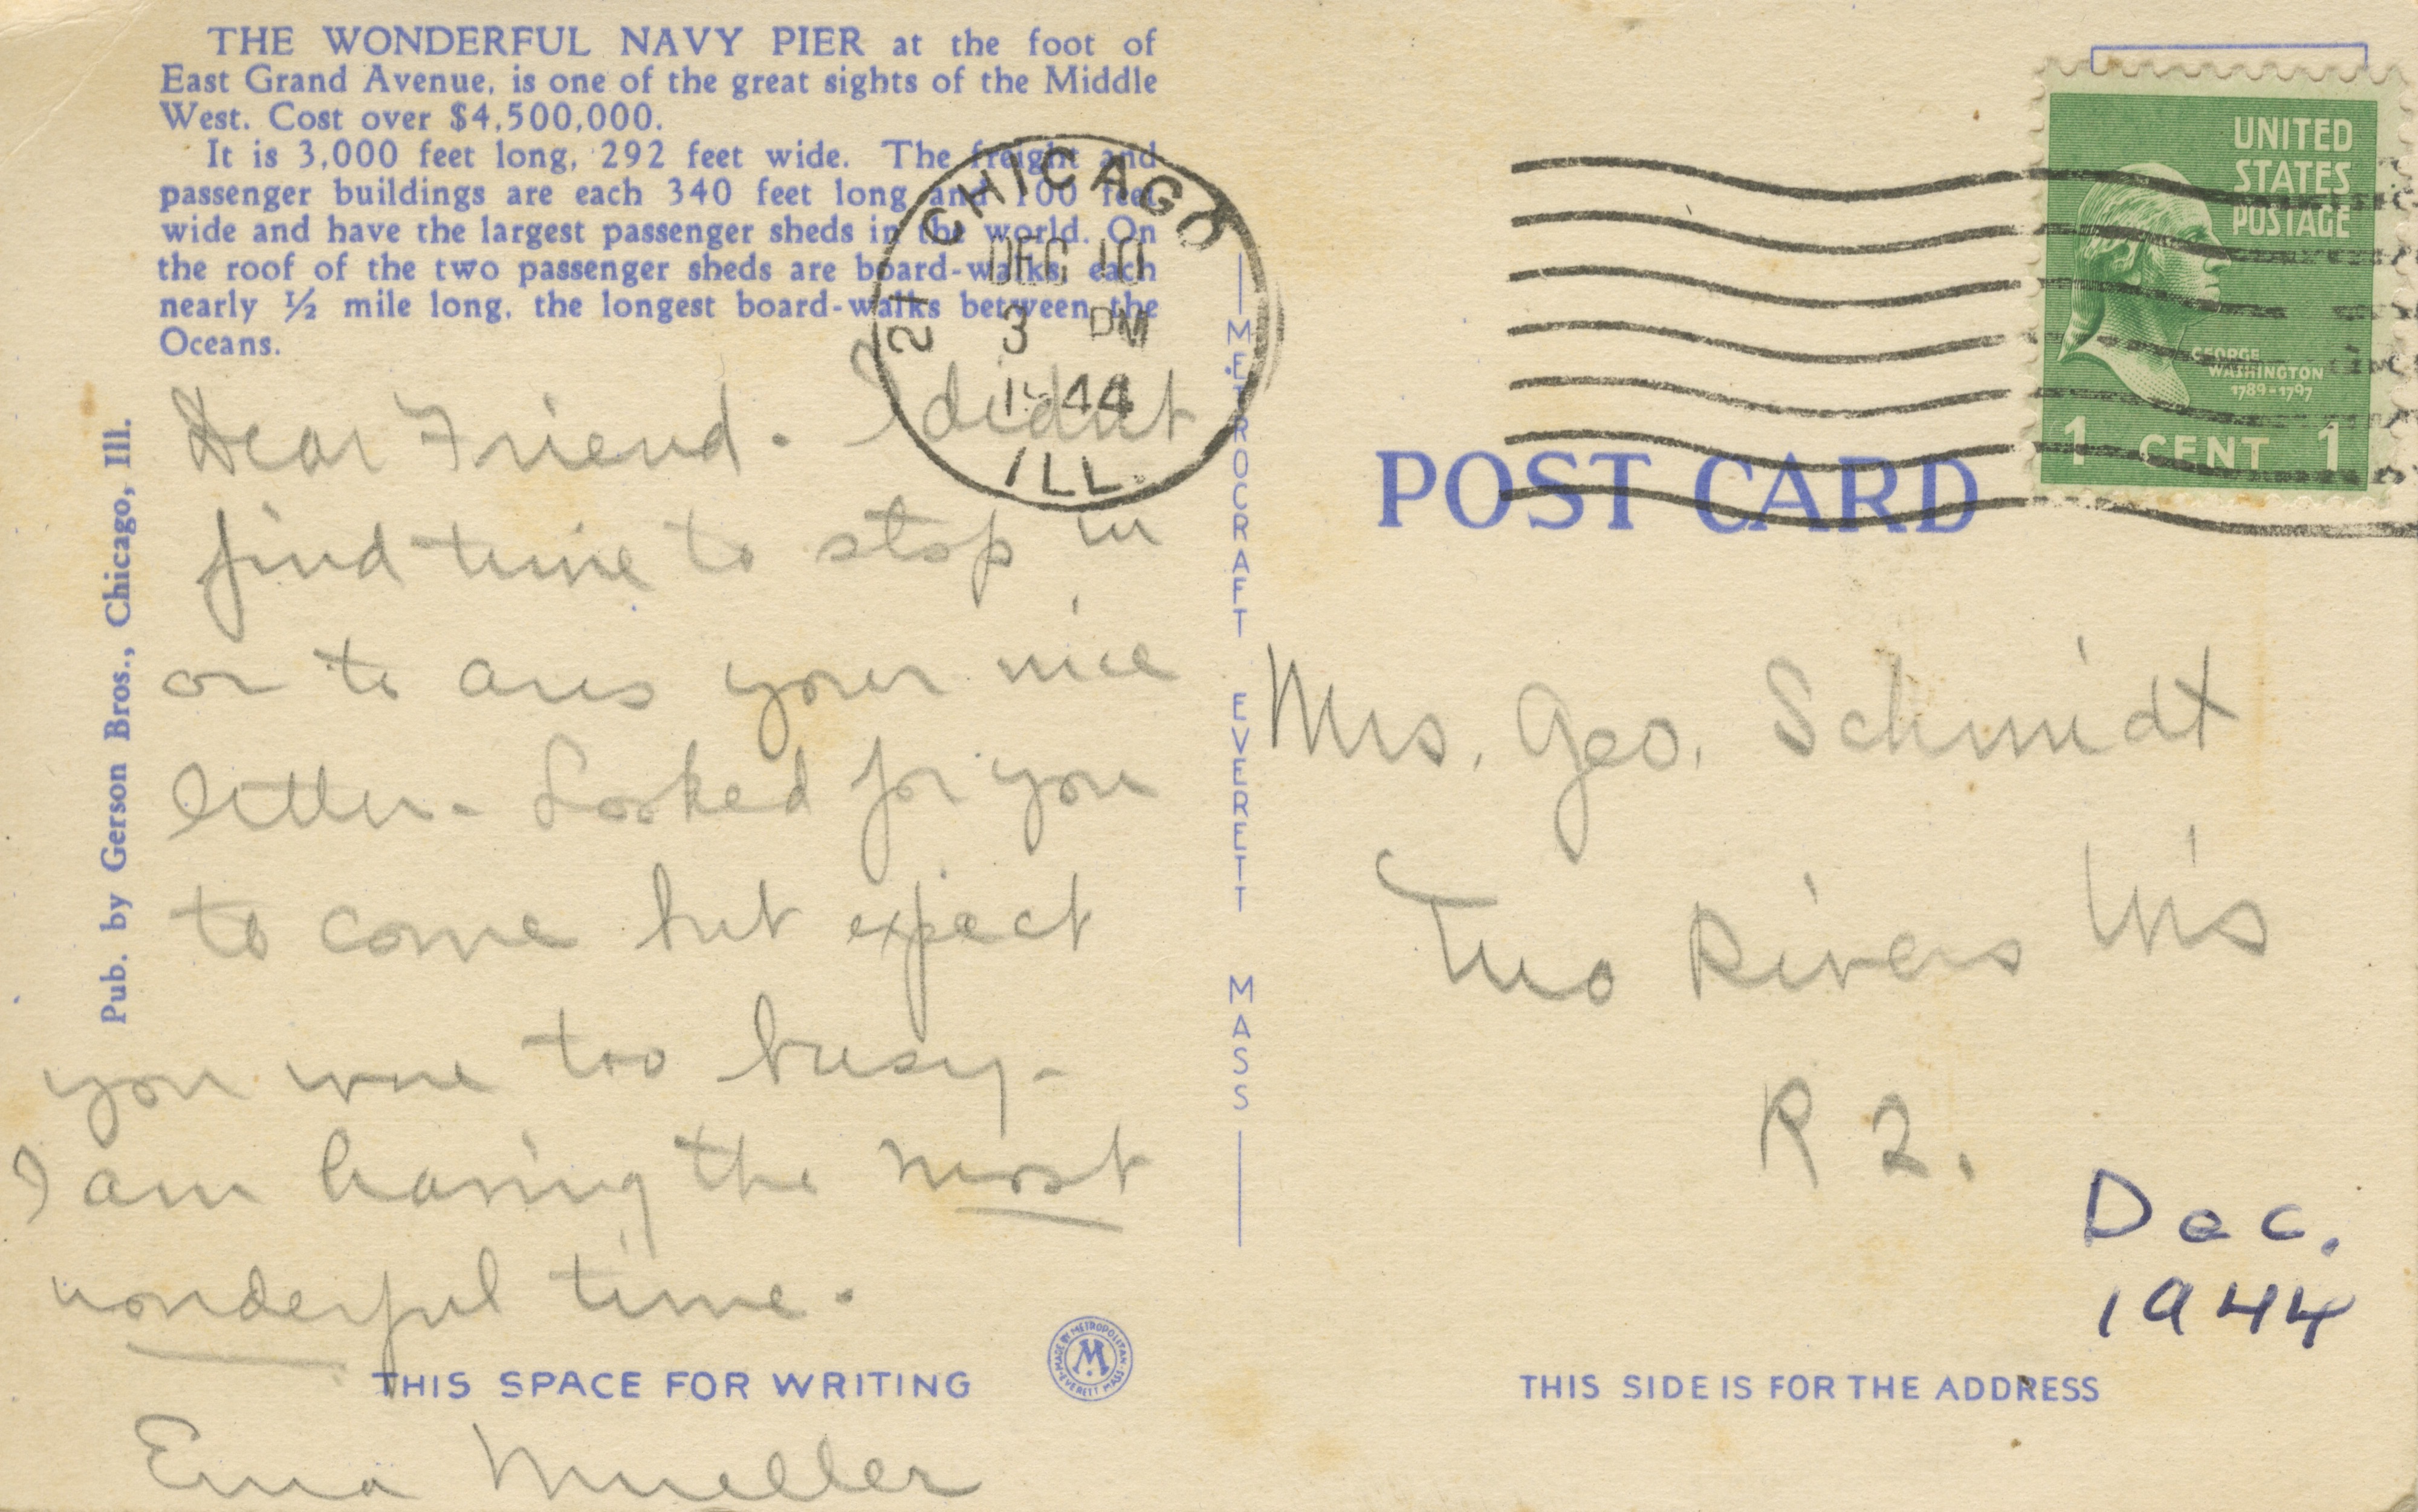 THE WONDERFUL NAVY PIER at the foot of
East Grand Avenue, is one of the great sights of the Middle
West. Cost over $4,500,000.
It is 3,000 feet long, 292 feet wide. The freight and
passenger buildings are each 340 feet long and 100 feet
wide and have the largest passenger sheds in the world. On
the roof of the two passenger sheds are board-walks, each
nearly ½ mile long, the longest board-walks between the
Oceans.
CHICAGO
21
DEC 10
3 PM
1944
ILL.
UNITED
STATES
POSTAGE
GEORGE
WASHINGTON
1789-1797
1 CENT 1
Pub. by Gerson Bros., Chicago, Ill.
Dear Friend. I didnt
find time to stop in
or to ans your nice
letter - Looked for you
to come but expect
you were too busy -
I am having the most
wonderful time.
THIS SPACE FOR WRITING
MADE BY METROPOLITAN
M
EVERETT MASS.
Mueller
METROCRAFT EVERETT MASS
POST CARD
Mrs. Geo. Schmidt
Two Rivers Wis
R 2.
Dec.
1944
THIS SIDE IS FOR THE ADDRESS